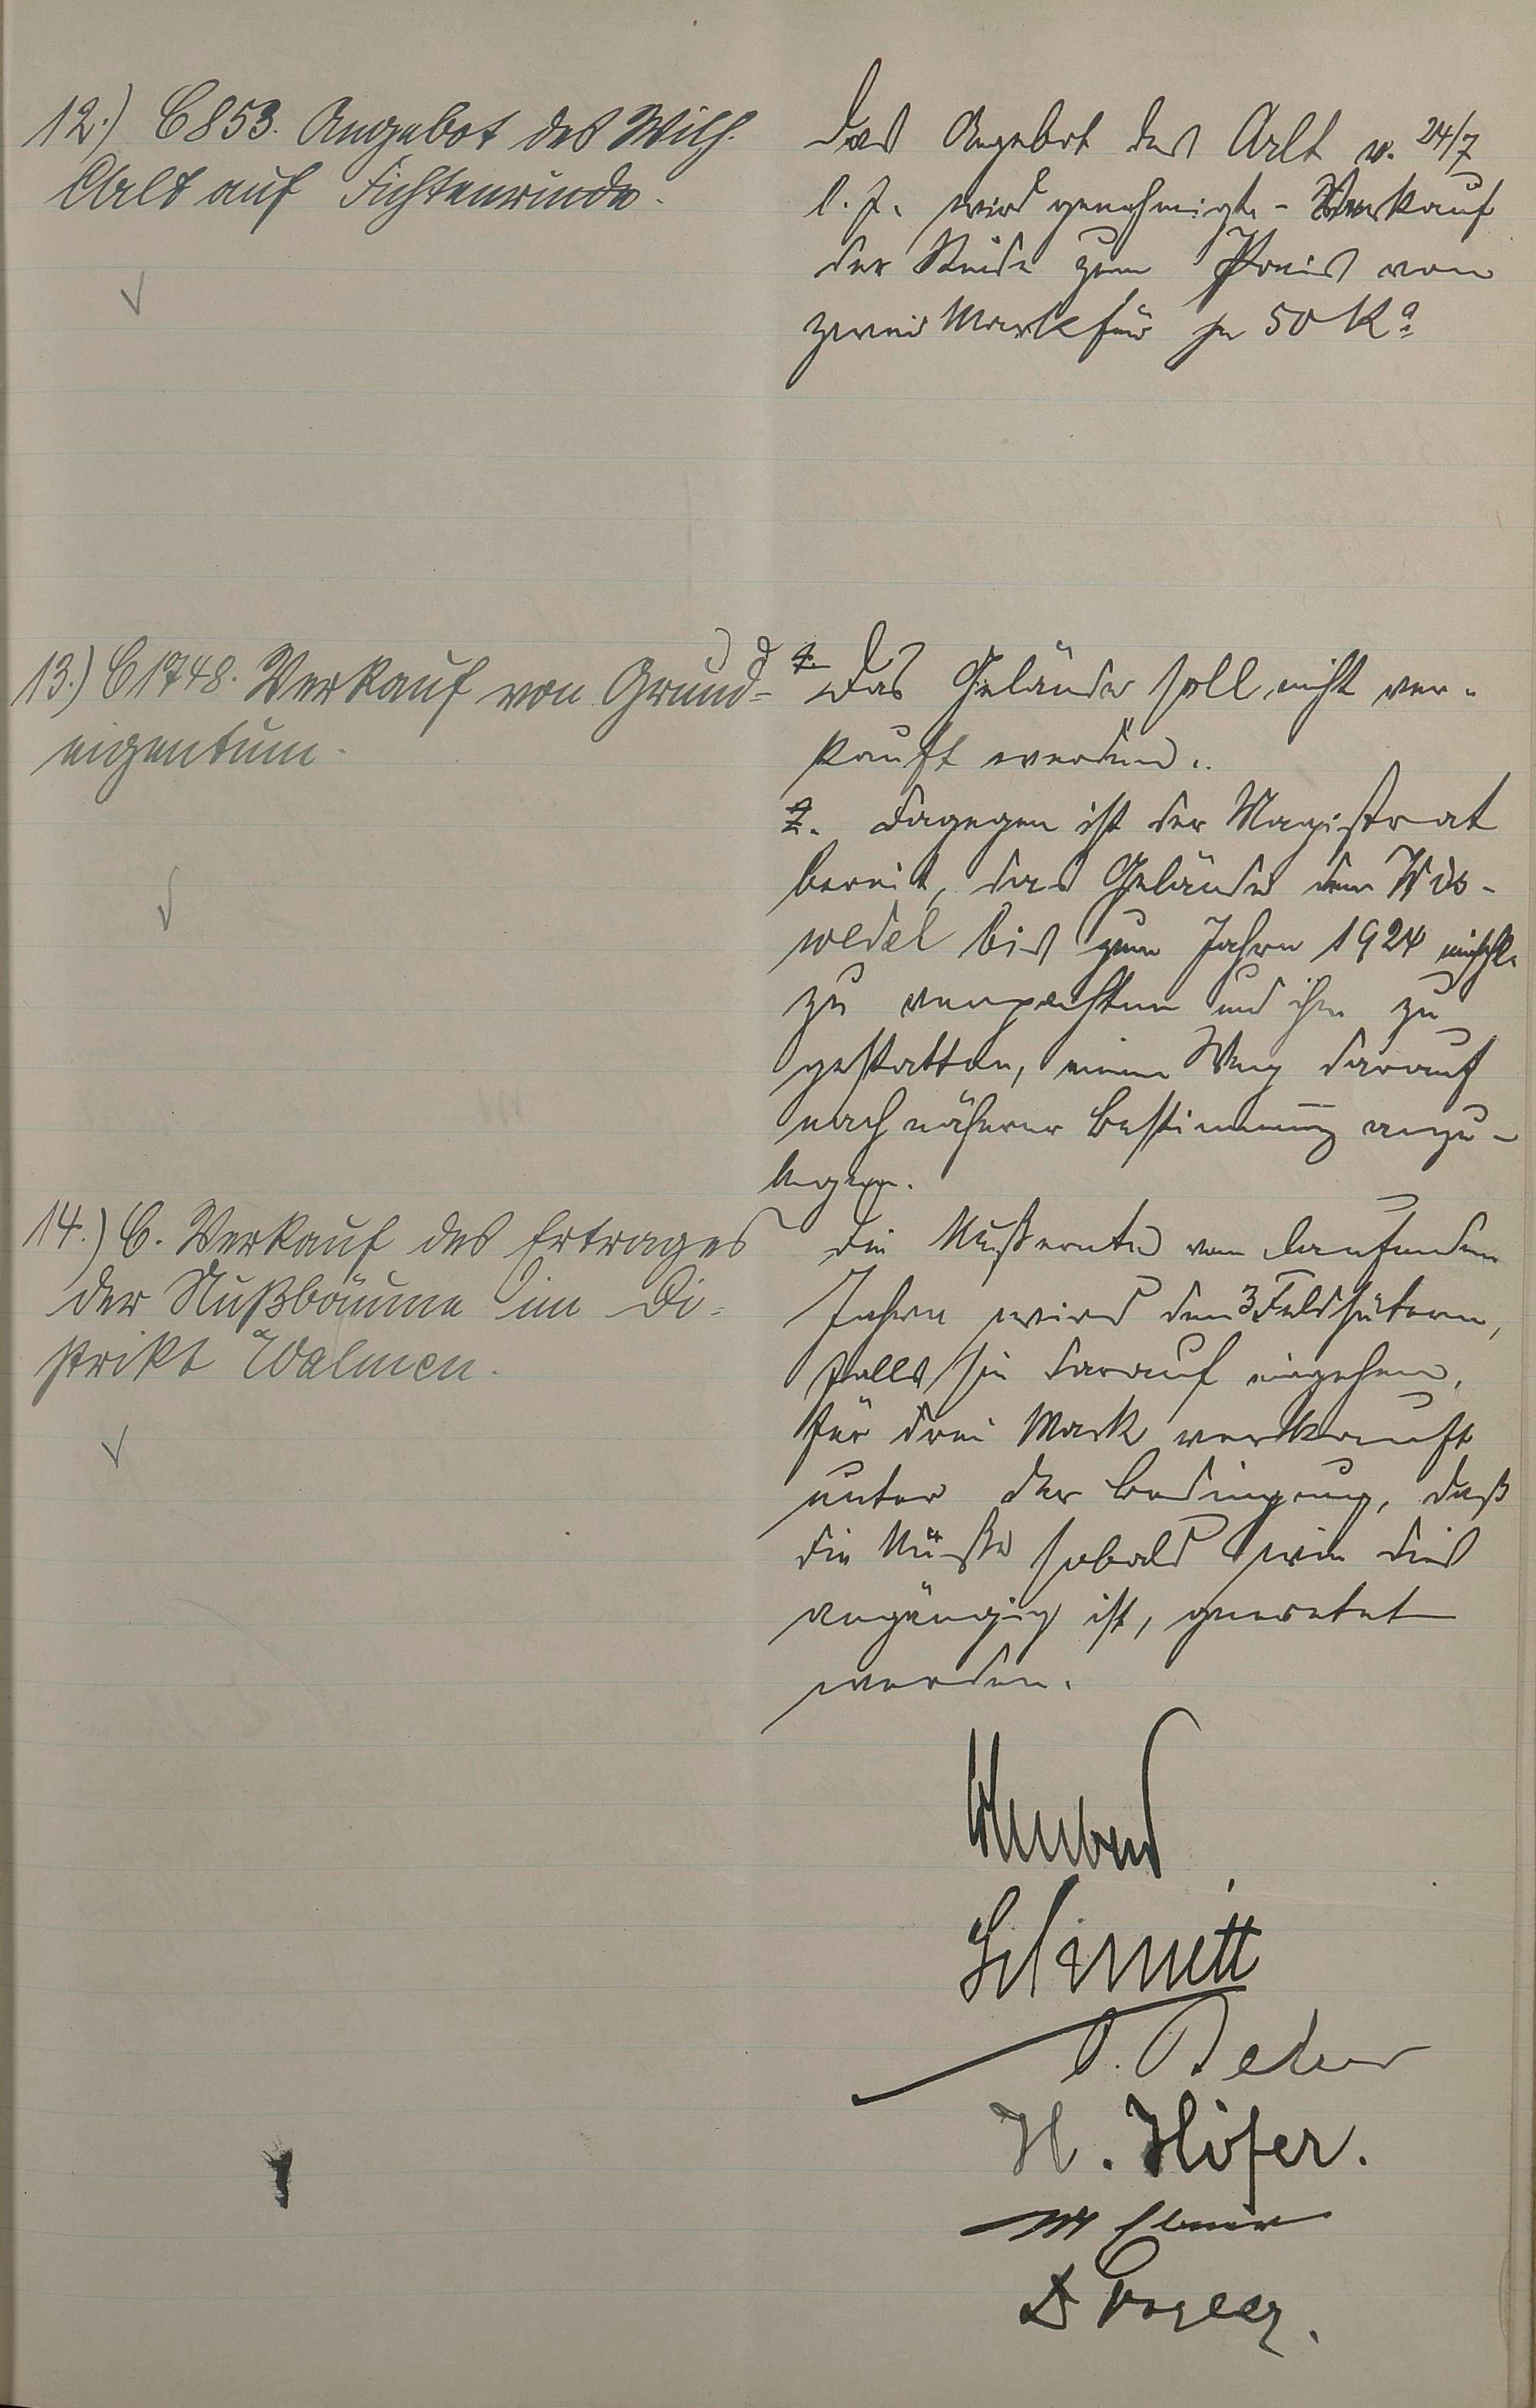 12.) C 853. Angebot des Wilh.
Arlt auf Fichtenrinde.
Das Angebot des Arlt v. 24/7
l. J. wird genehmigt - Verkauf
der Rinde zum Preis von
zwei Mark für je 50 Kg
13.) C 1748. Verkauf von Grund-
eigentum.
1. Das Gelände soll nicht ver-
kauft werden.
2. Dagegen ist der Magistrat
bereit, das Gelände dem
wedel bis zum Jahre 1924 nicht
zu verpachten und ihm zu
gestatten, einen Weg darauf
nach näherer Bestimmung anzu-
legen.
14.) C. Verkauf des Ertrages
der Nußbäume im Di-
strikt Walmen.
Die Nußernte vom laufenden
Jahre wird den 3 Feldhütern,
falls sie darauf eingehen,
für drei Mark verkauft
unter der Bedingung, daß
die Nüsse sobald wie dies
angängig ist, geerntet
werden.
Schmitt
H. Höfer.